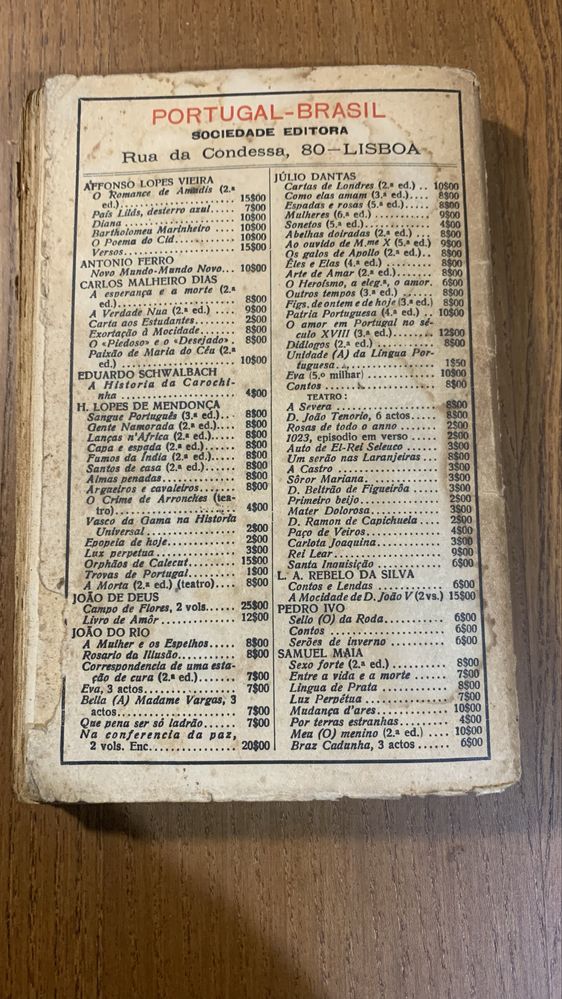 PORTUGAL-BRASIL
SOCIEDADE EDITORA
Rua da Condessa, 80—LISBOA
AFFONSO LOPES VIEIRA
O Romance de Amadis (2.ª
ed.)........................ 15$00
País Lilás, desterro azul..... 7$00
Diana ........................ 10$00
Bartholomeu Marinheiro ..... 10$00
O Poema do Cid.............. 10$00
Versos....................... 15$00
ANTONIO FERRO
Novo Mundo-Mundo Novo... 10$00
CARLOS MALHEIRO DIAS
A esperança e a morte (2.ª
ed.) ........................ 8$00
A Verdade Nua (2.ª ed.) .... 9$00
Carta aos Estudantes........ 2$00
Exortação à Mocidade....... 8$00
O «Piedoso» e o «Desejado» . 8$00
Paixão de Maria do Céu (2.ª
ed.) ........................ 10$00
EDUARDO SCHWALBACH
A Historia da Carochi-
nha ........................ 4$00
H. LOPES DE MENDONÇA
Sangue Português (3.ª ed.).. 8$00
Gente Namorada (2.ª ed.).... 8$00
Lanças n'Africa (2.ª ed.).... 8$00
Capa e espada (2.ª ed.)..... 8$00
Fumos da India (2.ª ed.).... 8$00
Santos de casa (2.ª ed.)..... 8$00
Almas penadas.............. 8$00
Argueiros e cavaleiros....... 8$00
O Crime de Arronches (tea-
tro)........................ 4$00
Vasco da Gama na Historia
Universal .................. 2$00
Epopeia de hoje............. 2$00
Lux perpetua............... 3$00
Orphãos de Calecut......... 15$00
Trovas de Portugal.......... 1$00
A Morta (2.ª ed.) (teatro).... 8$00
JOÃO DE DEUS
Campo de Flores, 2 vols..... 25$00
Livro de Amôr.............. 12$00
JOÃO DO RIO
A Mulher e os Espelhos...... 8$00
Rosario da Illusão........... 8$00
Correspondencia de uma esta-
ção de cura (2.ª ed.)....... 7$00
Eva, 3 actos................ 7$00
Bella (A) Madame Vargas, 3
actos....................... 7$00
Que pena ser só ladrão...... 7$00
Na conferencia da paz,
2 vols. Enc................ 20$00
JÚLIO DANTAS
Cartas de Londres (2.ª ed.) .. 10$00
Como elas amam (3.ª ed.).... 8$00
Espadas e rosas (5.ª ed.)..... 8$00
Mulheres (6.ª ed.) ........... 9$00
Sonetos (5.ª ed.)............. 4$00
Abelhas doiradas (2.ª ed.) ... 8$00
Ao ouvido de M.me X (5.ª ed.) 9$00
Os galos de Apollo (2.ª ed.).. 8$00
Êles e Elas (4.ª ed.) ......... 8$00
Arte de Amar (2.ª ed.) ....... 8$00
O Heroísmo, a eleg.ª, o amor. 6$00
Outros tempos (3.ª ed.) ...... 8$00
Figs. de ontem e de hoje (3.ª ed.) 8$00
Patria Portuguesa (4.ª ed.) .. 10$00
O amor em Portugal no sé-
culo XVIII (3.ª ed.)........ 12$00
Diálogos (2.ª ed.)........... 8$00
Unidade (A) da Língua Por-
tuguesa.................... 1$50
Eva (5.º milhar) ............. 10$00
Contos ..................... 8$00
TEATRO:
A Severa ................... 8$00
D. João Tenorio, 6 actos..... 8$00
Rosas de todo o anno ....... 2$00
1023, episodio em verso ..... 2$00
Auto de El-Rei Seleuco ...... 3$00
Um serão nas Laranjeiras ... 8$00
A Castro ................... 3$00
Sôror Mariana.............. 3$00
D. Beltrão de Figueirôa ..... 3$00
Primeiro beijo.............. 2$00
Mater Dolorosa............. 3$00
D. Ramon de Capichuela ... 2$00
Paço de Veiros.............. 4$00
Carlota Joaquina............ 3$00
Rei Lear.................... 9$00
Santa Inquisição ............ 6$00
L. A. REBELO DA SILVA
Contos e Lendas ............ 6$00
A Mocidade de D. João V (2 vs.) 15$00
PEDRO IVO
Sello (O) da Roda........... 6$00
Contos ..................... 6$00
Serões de inverno ........... 6$00
SAMUEL MAIA
Sexo forte (2.ª ed.).......... 8$00
Entre a vida e a morte ...... 7$00
Lingua de Prata ............ 8$00
Luz Perpétua ............... 7$00
Mudança d'ares............. 10$00
Por terras estranhas......... 4$00
Meu (O) menino (2.ª ed.) .... 10$00
Braz Cadunha, 3 actos...... 6$00